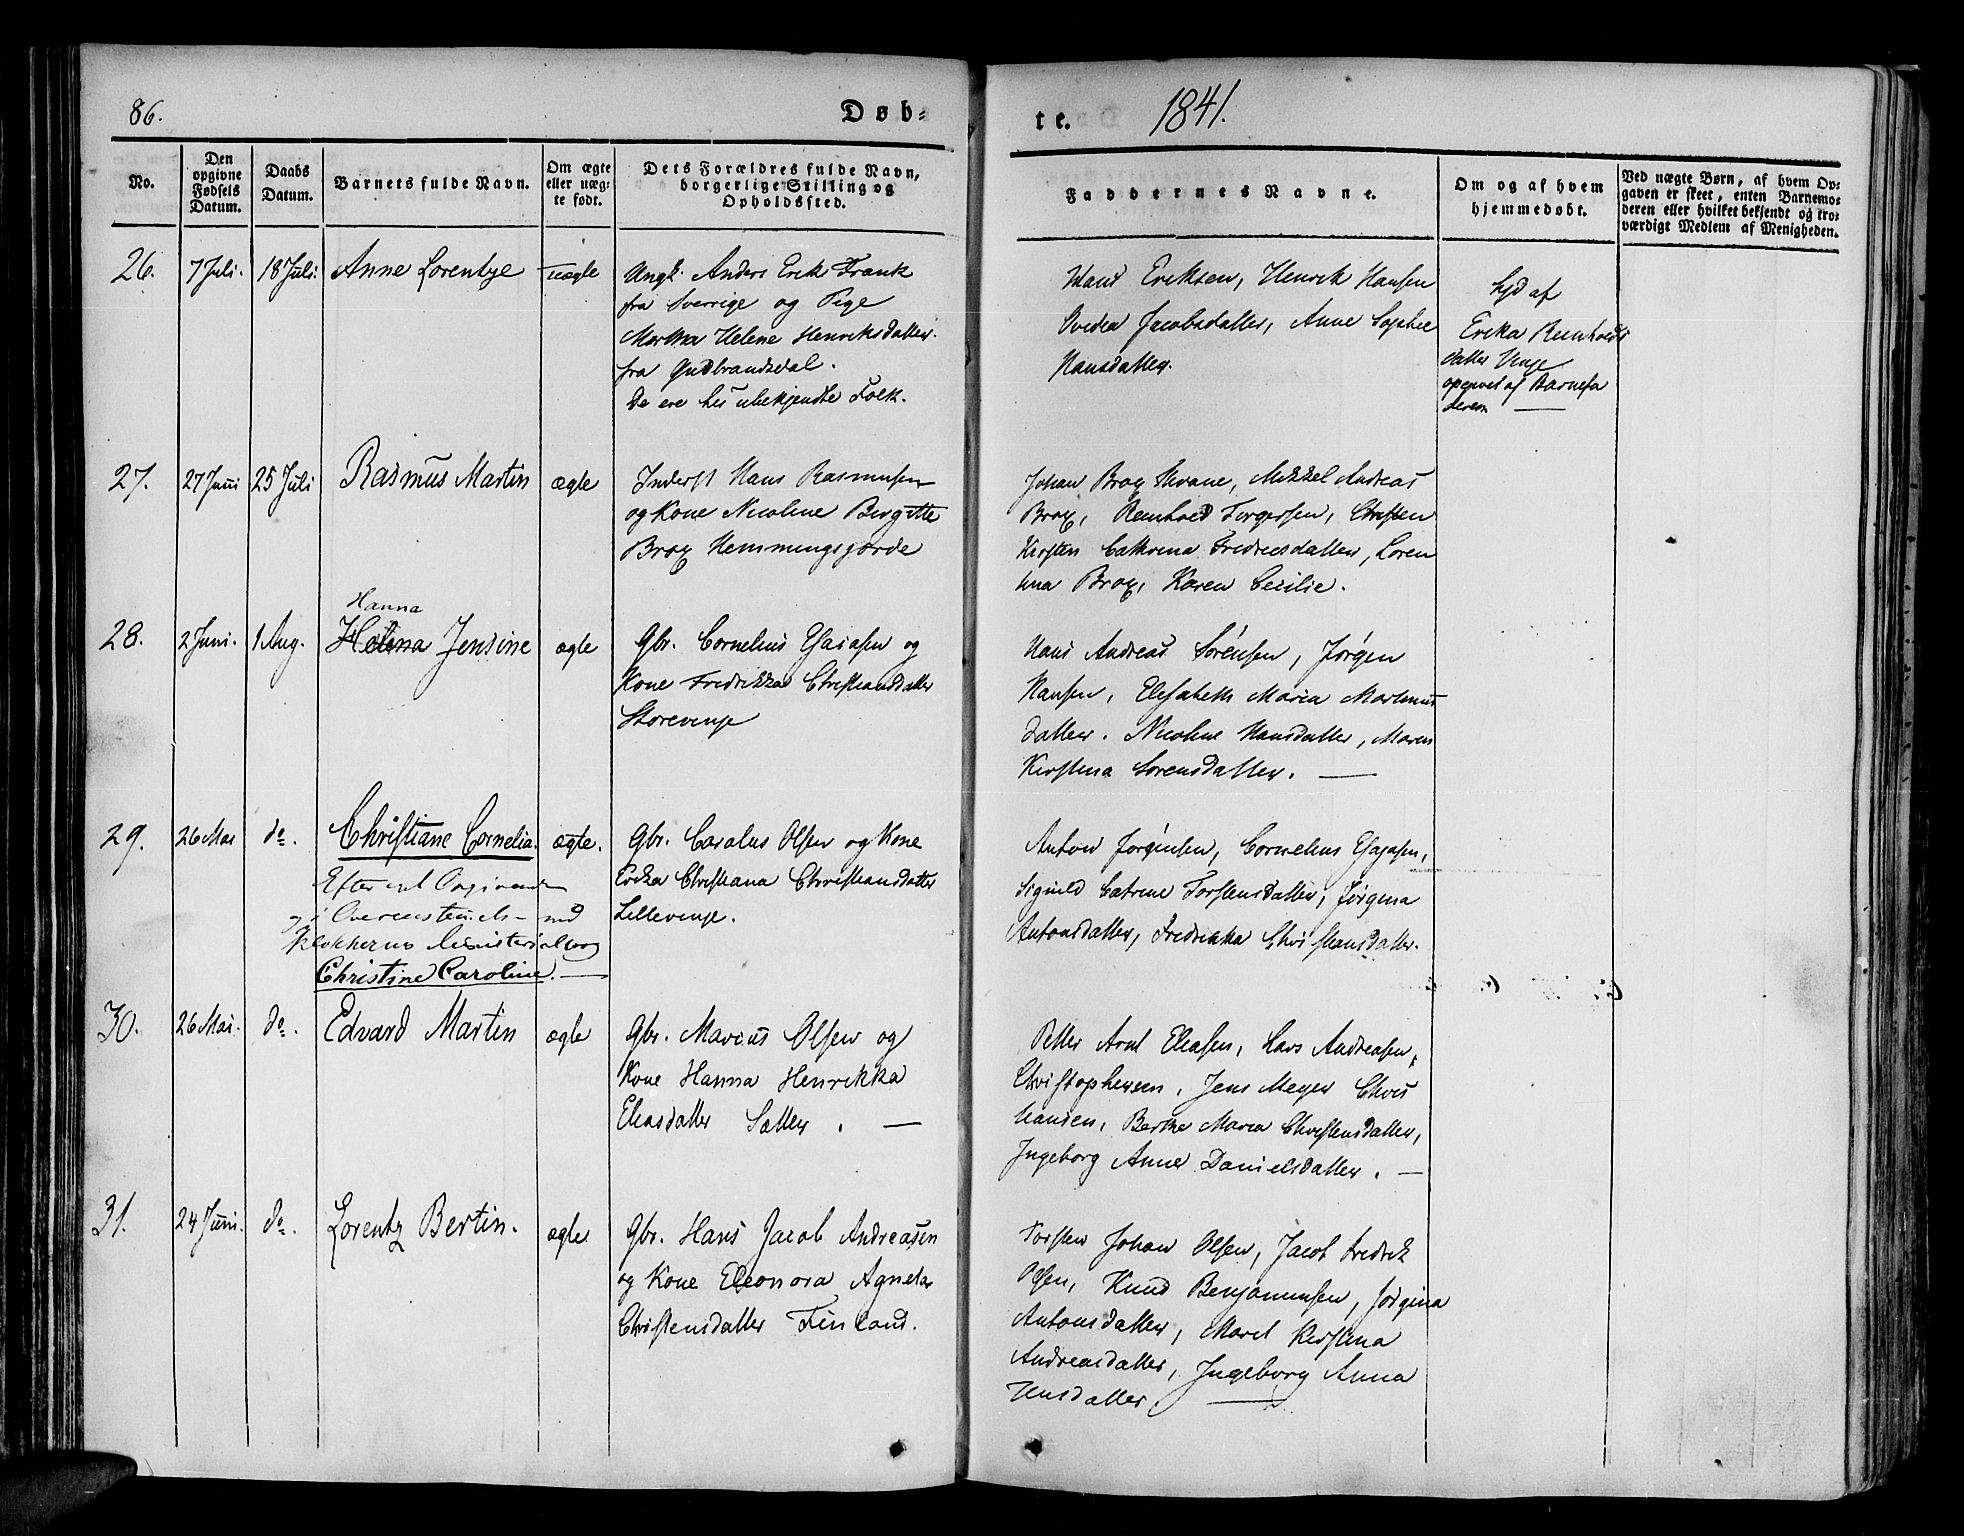 86.
Døb-
te.
1841.
No.
Den
opgivne
Fødsels
Datum.
Daabs
Datum.
Barnets fulde Navn.
Om ægte
eller uæg-
te født.
Dets Forældres fulde Navn,
borgerlige Stilling og
Opholdssted.
Faddernes Navne.
Om og af hvem
hjemmedøbt.
Ved uægte Børn, af hvem Op-
gaven er skeet, enten Barnemo-
deren eller hvilket bekjendt og tro-
værdigt Medlem af Menigheden.
26. 7 Juli. 18 Juli. Anne Lorentze uægte
Ungk. Anders Erik Frank
fra Sverrige og Pige
Martha Helene Henriksdatter
fra Gudbrandsdal.
De ere her ubekjendte Folk.
Hans Eriksen, Henrik Hansen
Ovedia Jacobsdatter, Anne Sophie
Hansdatter.
hjd af
Erika Reinholds
datter Vinje
opgivet af Barnefa
deren —
27. 27 Juni 25 Juli Rasmus Martin ægte
Inderst Hans Rasmusen
og Kone Nicoline Birgitte
Brox Hemmingsjorde
Johan Brox Hvane, Mikkel Andreas
Brox, Reinhold Torgersen, Christen
Kirsten Cathrina Fredriksdatter, Loren
tina Brox, Karen Cecilie.
28. 2 Juni. 1 Aug. Hanna
Helena Jensine ægte
Gbr. Cornelius Esaiasen og
Kone Fredrikka Christiansdatter
Storevinje
Hans Andreas Sørensen, Jørgen
Hansen, Elisabeth Maria Martinus
datter. Nicoline Hansdatter, Maren
Kirstina Sørensdatter. —
29. 26 Mai do. Christiane Cornelia. ægte.
Efter
og i Overenstemels- med
Klokkerens Ministerialbog
Christine Caroline. —
Gbr. Carolus Olsen og Kone
Erika Christiana Christiansdatter
Lillevinje.
Anton Jørginsen, Cornelius Esajasen,
Sigrild Catrine Torstensdatter, Jørgina
Antonsdatter, Fredrikka Christiansdatter.
30. 26 Mai. do. Edvard Martin ægte
Gbr. Marcus Olsen og
Kone Hanna Henrikka
Eliasdatter Sætter. —
Petter Arnt Eliasen, Lars Andreasen,
Christophersen, Jens Meyer Chris
tiansen, Berthe Maria Christensdatter,
Ingeborg Anne Danielsdatter. —
31. 24 Juni. do. Lorentz Bertin. ægte
Gbr. Hans Jacob Andreasen
og Kone Eleonora Agneta
Christensdatter Finland.
Torsten Johan Olsen, Jacob Fredrik
Olsen, Knud Benjaminsen, Jørgina
Antonsdatter, Maret Kirstina
Andreasdatter, Ingeborg Anna
Jensdatter —